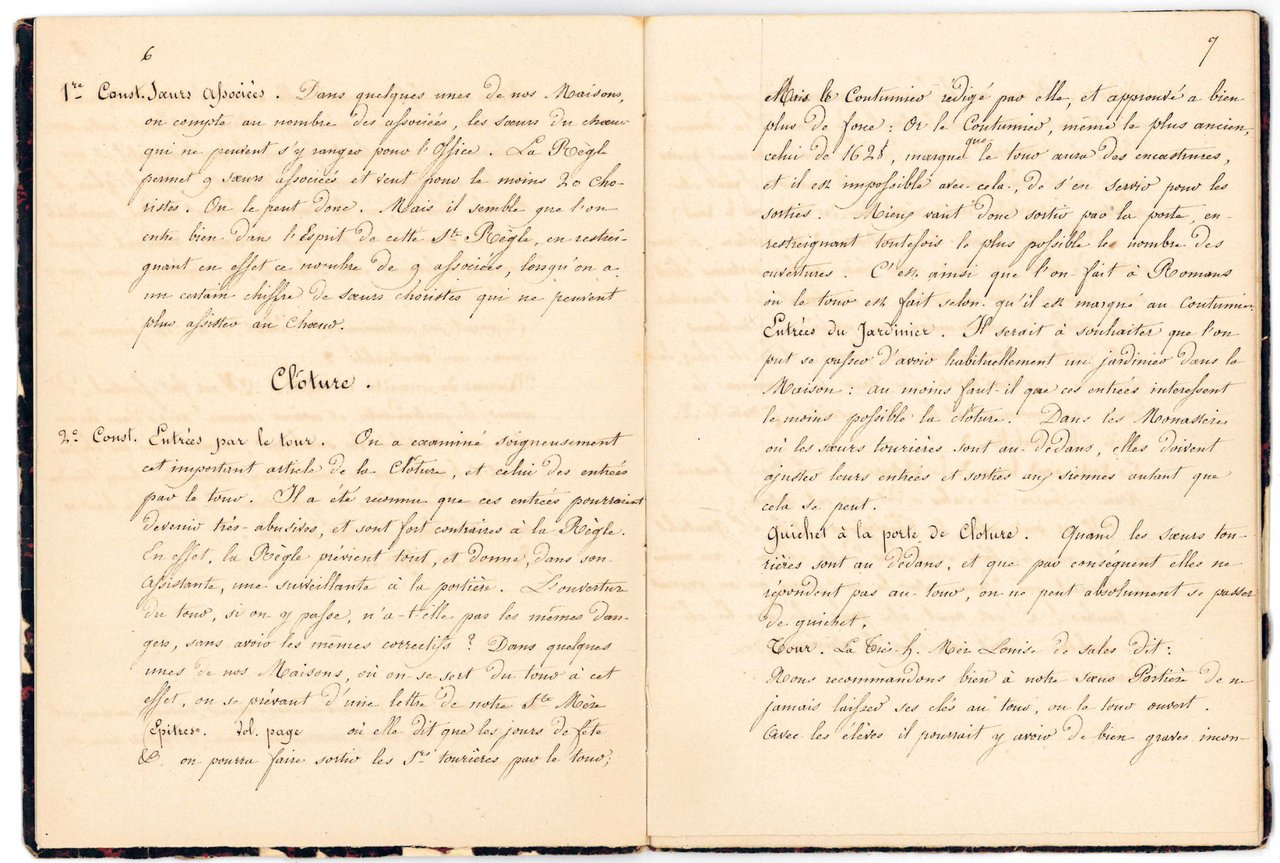 6
1re Const. Sœurs Associées. Dans quelques unes de nos Maisons,
on compte au nombre des associées, les sœurs du chœur
qui ne peuvent s'y ranger pour l'Office. La Règle
permet 9 sœurs associées et veut pour le moins 20 cho-
ristes. On le peut donc. Mais il semble que l'on
entre bien dans l'Esprit de cette Ste Règle, en restrei-
gnant en effet ce nombre de 9 associées, lorsqu'on a
un certain chiffre de sœurs choristes qui ne peuvent
plus assister au Chœur.
Clôture.
2e Const. Entrées par le tour. On a examiné soigneusement
cet important article de la Clôture, et celui des entrées
par le tour. Il a été reconnu que ces entrées pourraient
devenir très-abusives, et sont fort contraires à la Règle.
En effet, la Règle prévient tout, et donne, dans son
Assistante, une surveillante à la portière. L'ouverture
du tour, si on y passe, n'a-t-elle pas les mêmes dan-
gers, sans avoir les mêmes correctifs ? Dans quelques
unes de nos Maisons, où on se sert du tour à cet
effet, on se prévaut d'une lettre de notre Ste Mère
Epitres. Vol. page où elle dit que les jours de fête
&. on pourra faire sortir les Srs tourières par le tour;
7
Mais le Coutumier rédigé par elle, et approuvé a bien
plus de force : Or le Coutumier, même le plus ancien,
celui de 1628, marque que le tour aura des encastrures,
et il est impossible avec cela, de s'en servir pour les
sorties. Mieux vaut donc sortir par la porte, en
restreignant toutefois le plus possible le nombre des
ouvertures. C'est ainsi que l'on fait à Romans
où le tour est fait selon qu'il est marqué au Coutumier.
Entrées du Jardinier. Il serait à souhaiter que l'on
put se passer d'avoir habituellement un jardinier dans la
Maison : au moins faut-il que ces entrées interessent
le moins possible la clôture. Dans les Monastères
où les sœurs tourières sont au dedans, elles doivent
ajuster leurs entrées et sorties aux siennes autant que
cela se peut.
Guichet à la porte de Clôture. Quand les sœurs tou-
rières sont au dedans, et que par conséquent elles ne
répondent pas au tour, on ne peut absolument se passer
de guichet.
Tour. La Très-h. Mère Louise de sales dit :
Nous recommandons bien à notre sœur Portière de ne
jamais laisser ses clés au tour, ou le tour ouvert.
Avec les élèves il pourrait y avoir de bien graves incon-